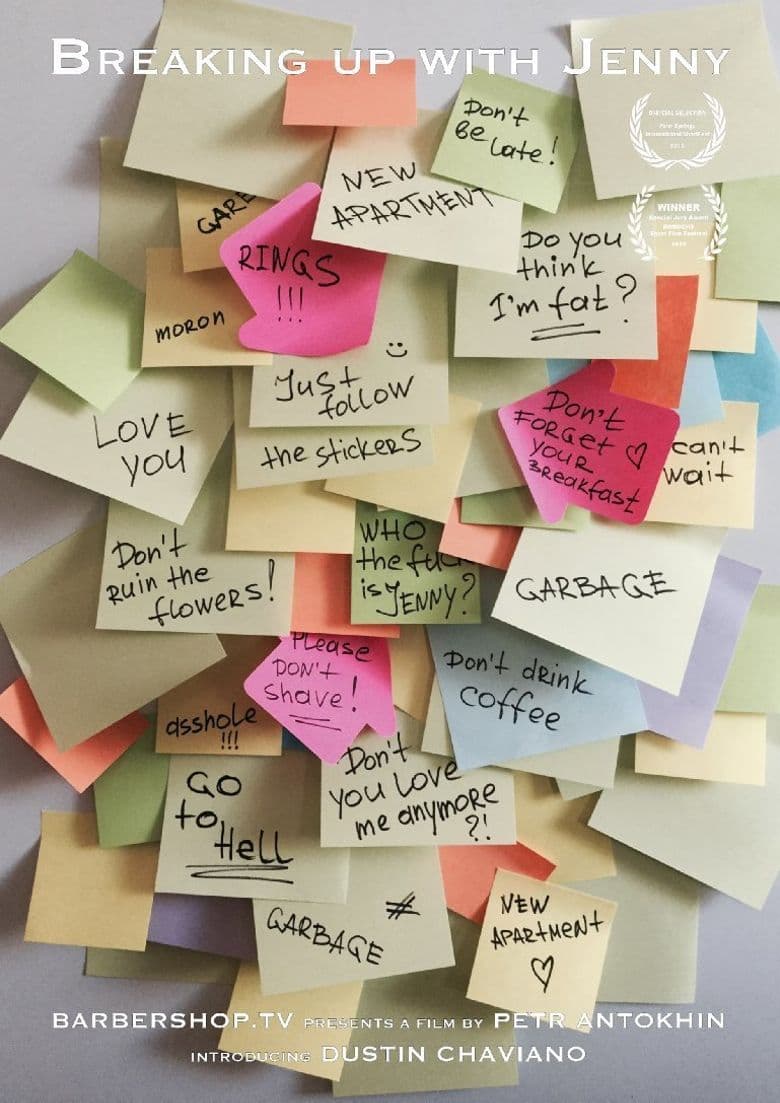 BREAKING UP WITH JENNY
Don't
be late!
NEW
APARTMENT
SPECIAL SELECTION
Palm Springs
International ShortFest
WINNER
Special Jury Award
Short Film Festival
RINGS
!!!
Do you
think
I'm fat?
MORON
:)
Just
follow
the stickers
LOVE
YOU
Don't
FORGET
YOUR ♡
BREAKfast
can't
wait
Don't
RUIN the
flowers!
WHO
the fuc
is JENNY?
GARBAGE
PLEASE
DON'T
Shave!
Don't drink
coffee
asshole
!!!
Don't
you love
me anymore
?!
GO
to
Hell
≠
GARBAGE
NEW
APARtMENt
♡
BARBERSHOP.TV PRESENTS A FILM BY PETR ANTOKHIN
INTRODUCING DUSTIN CHAVIANO